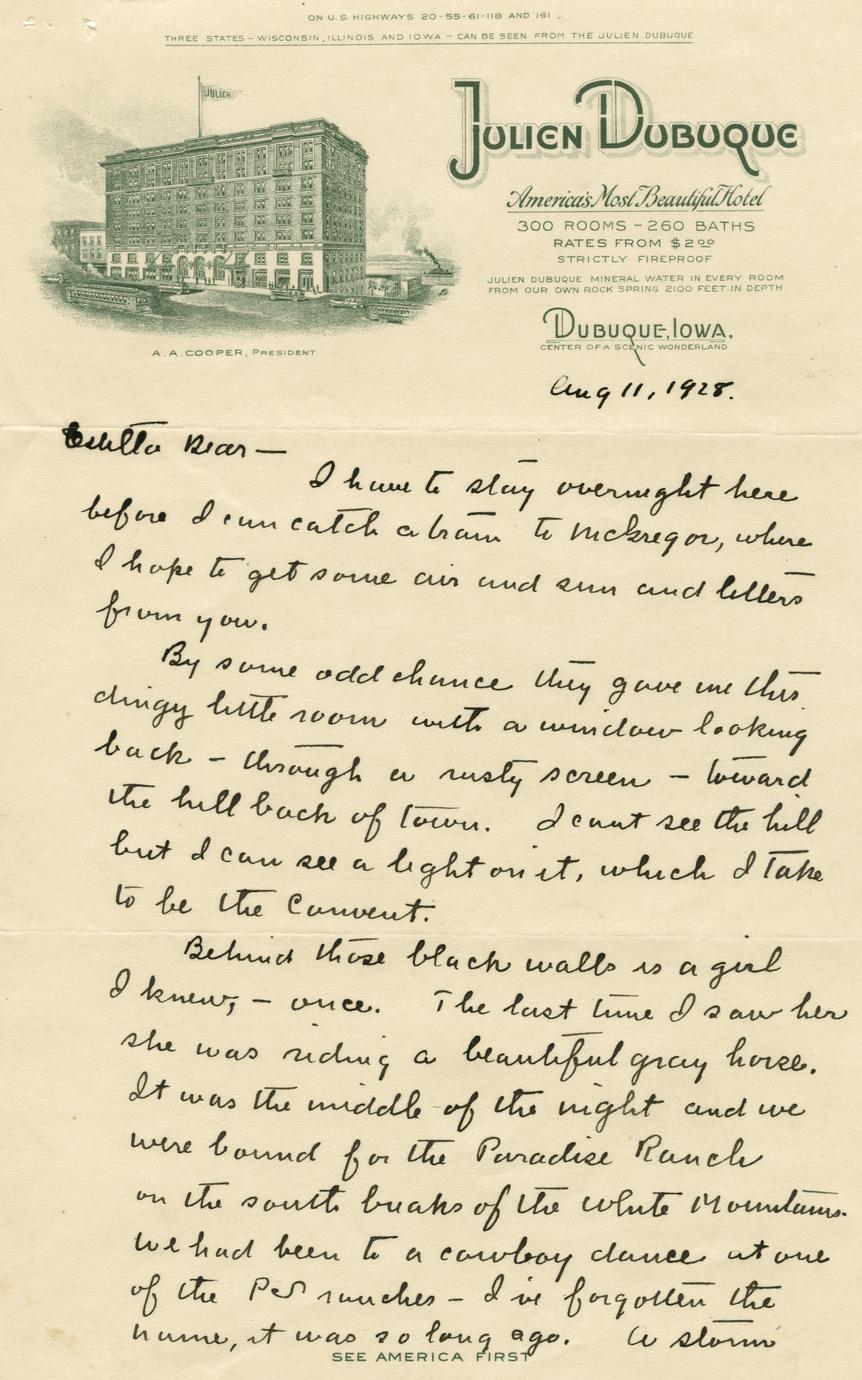 ON U.S. HIGHWAYS 20-55-61-118 AND 161
THREE STATES - WISCONSIN, ILLINOIS AND IOWA - CAN BE SEEN FROM THE JULIEN DUBUQUE
JULIEN
JULIEN DUBUQUE
America's Most Beautiful Hotel
300 ROOMS - 260 BATHS
RATES FROM $2.00
STRICTLY FIREPROOF
JULIEN DUBUQUE MINERAL WATER IN EVERY ROOM
FROM OUR OWN ROCK SPRING 2100 FEET IN DEPTH
DUBUQUE, IOWA.
CENTER OF A SCENIC WONDERLAND
A. A. COOPER, PRESIDENT
Aug 11, 1928.
Estella Dear —
I have to stay overnight here
before I can catch a train to McGregor, where
I hope to get some air and sun and letters
from you.
By some odd chance they gave me this
dingy little room with a window looking
back - through a rusty screen - toward
the hill back of town. I cant see the hill
but I can see a light on it, which I take
to be the Convent.
Behind those black walls is a girl
I knew, - once. The last time I saw her
she was riding a beautiful gray horse.
It was the middle of the night and we
were bound for the Paradise Ranch
on the south breaks of the White Mountains.
We had been to a cowboy dance at one
of the ranches - I've forgotten the
name, it was so long ago. A storm
SEE AMERICA FIRST